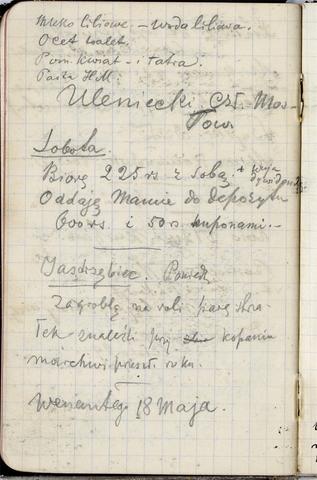 Mleko liliowe. – woda liliowa.
Ocet toalet.
Pom. kwiat – i tatra.
Pasta H.M.
Uleniecki, czł. Mos-
Tow.
Sobota.
Biorę 225 rs z sobą. +
Oddaję Mamie do depozytu
600 rs. i 50 rs kuponami. –
Jastrzębiec.
Zagroblą na roli parę
Tek znaleźli przy kopaniu
marchwi przeszł. roku.
18 Maja.